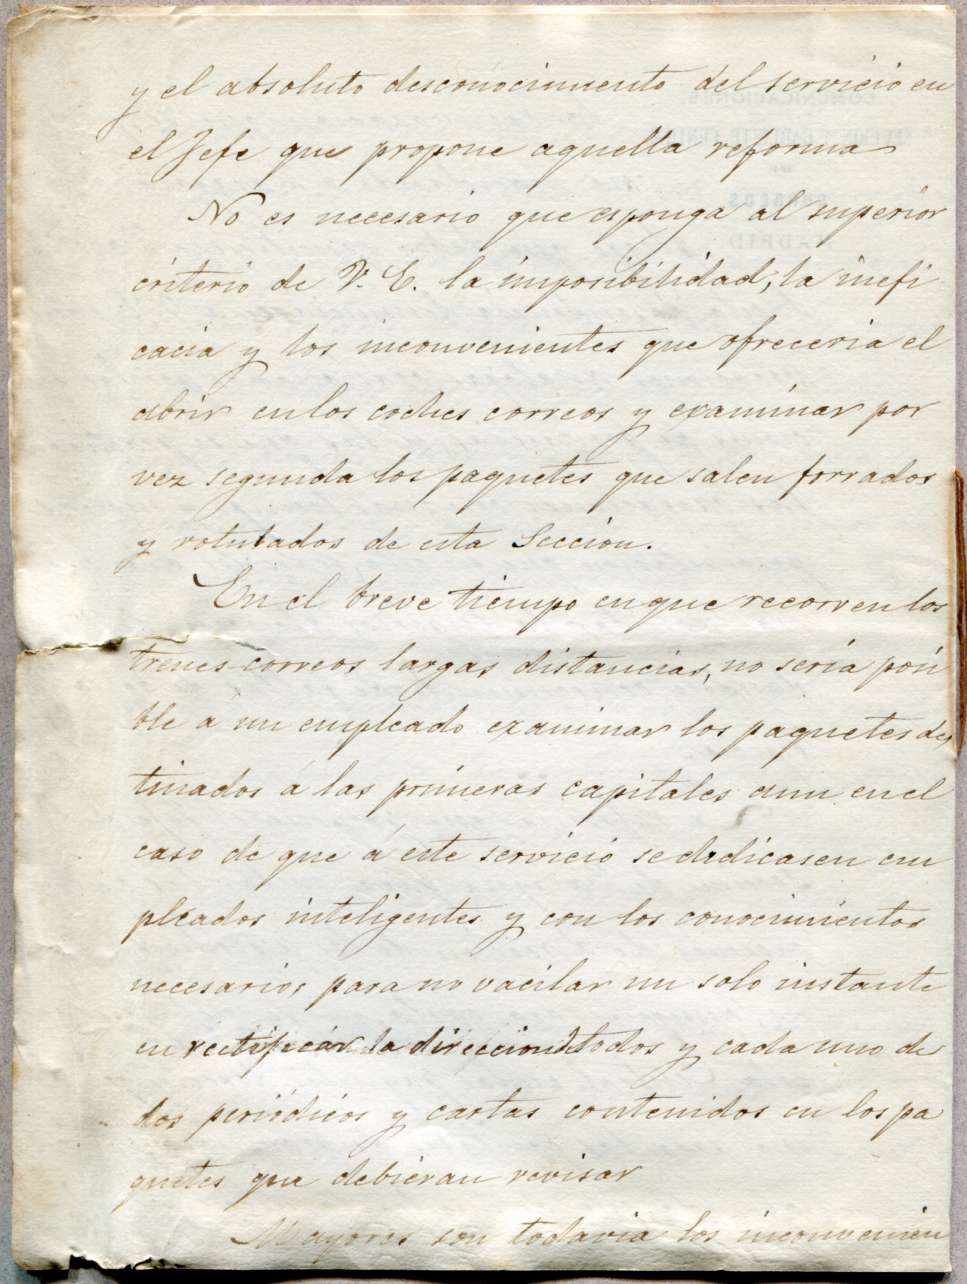 y el absoluto desconocimiento del servicio en
el Jefe que propone aquella reforma
No es necesario que esponga al superior
criterio de V. E. la imposibilidad, la inefi
cacia y los inconvenientes que ofreceria el
abrir en los coches correos y examinar por
vez segunda los paquetes que salen forrados
y rotulados de esta Seccion.
En el breve tiempo en que recorren los
trenes correos largas distancias, no sería posi
ble a un empleado examinar los paquetes des
tinados á las primeras capitales aun en el
caso de que á este servicio se dedicasen em
pleados inteligentes y con los conocimientos
necesarios para no vacilar un solo instante
en rectificar la direccion de todos y cada uno de
los periódicos y cartas contenidos en los pa
quetes que debieran revisar
Mayores son todavia los inconvenien
COMUNICACIONES
MADRID